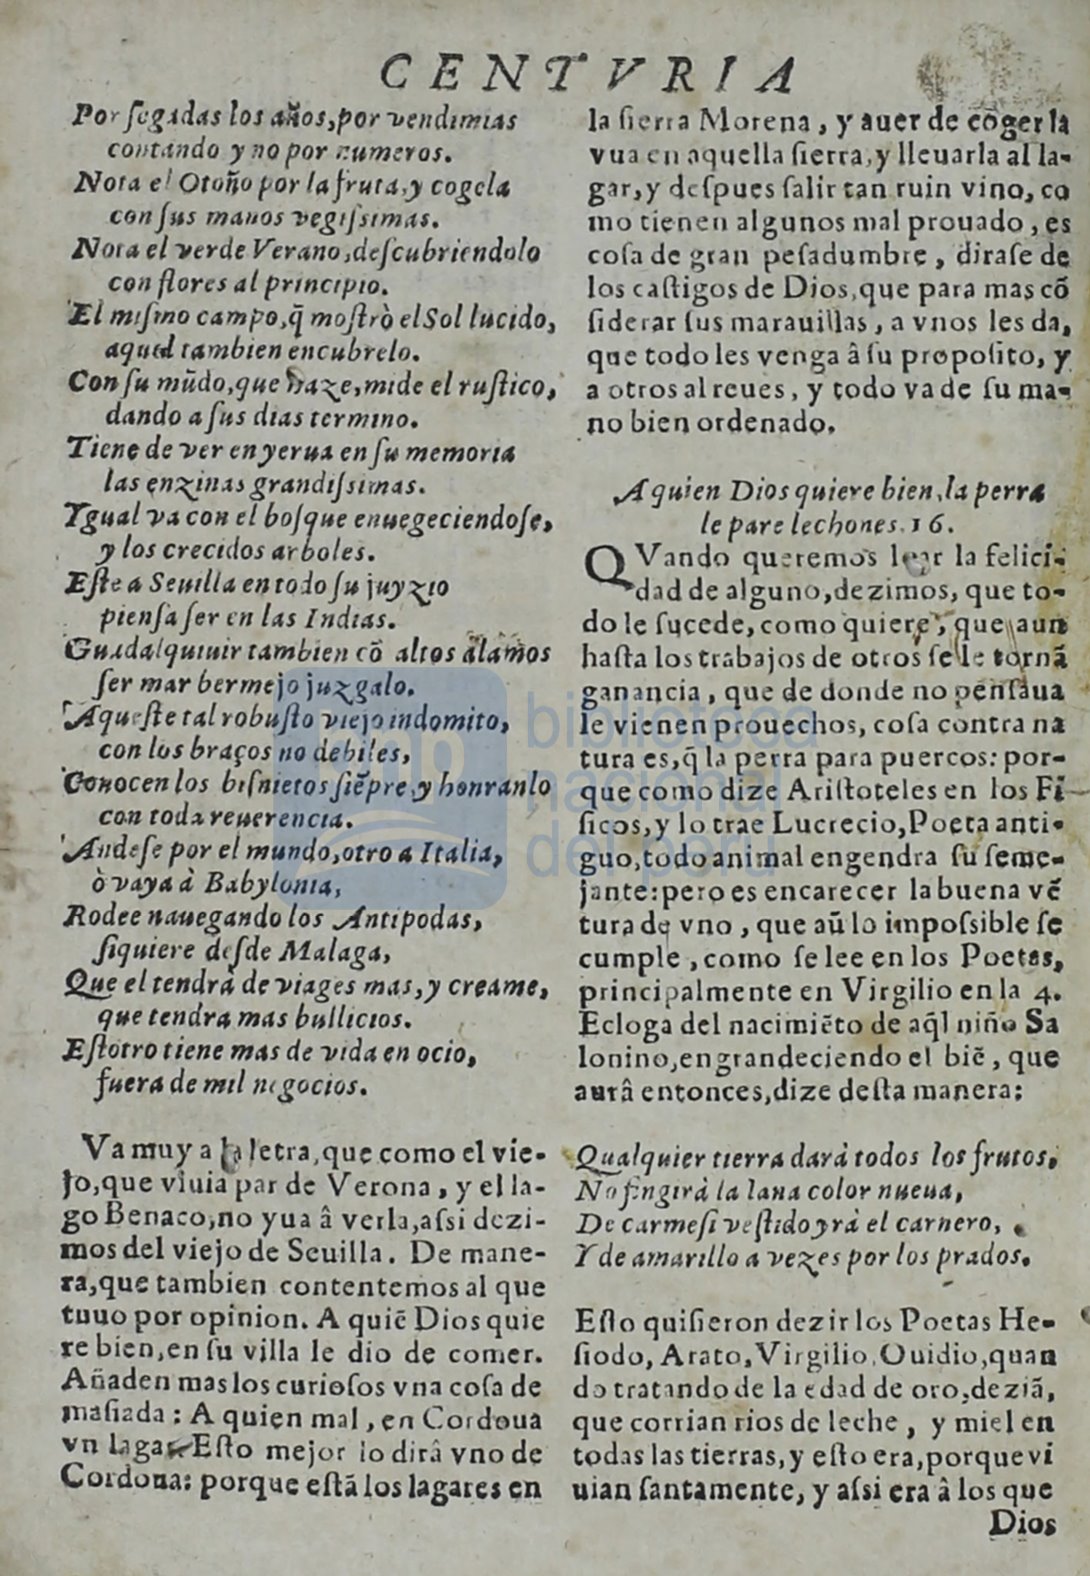 CENTVRIA
Por ſegadas los años,por vendimias
contando y no por numeros.
Nota el Otoño por la fruta,y cogela
con ſus manos vegiſsimas.
Nota el verde Verano,deſcubriendolo
con flores al principio.
El miſmo campo,q̃ moſtrò el Sol lucido,
aquel tambien encubrelo.
Con ſu mũdo,que haze,mide el ruſtico,
dando a ſus dias termino.
Tiene de ver en yerua en ſu memoria
las enzinas grandiſsimas.
Ygual va con el boſque enuegeciendoſe,
y los crecidos arboles.
Eſte a Seuilla en todo ſu juyzio
pienſa ſer en las Indias.
Guadalquiuir tambien cõ altos alamos
ſer mar bermejo juzgalo.
Aqueſte tal robuſto viejo indomito,
con los braços no debiles,
Conocen los biſnietos ſiẽpre,y honranlo
con toda reuerencia.
Andeſe por el mundo,otro a Italia,
ò vaya à Babylonia,
Rodee nauegando los Antipodas,
ſiquiere deſde Malaga,
Que el tendrà de viages mas,y creame,
que tendra mas bullicios.
Eſtotro tiene mas de vida en ocio,
fuera de mil negocios.
Va muy a la letra,que como el vie-
jo,que viuia par de Verona, y el la-
go Benaco,no yua â verla,aſsi dezi-
mos del viejo de Seuilla. De mane-
ra,que tambien contentemos al que
tuuo por opinion. A quiẽ Dios quie
re bien,en ſu villa le dio de comer.
Añaden mas los curioſos vna coſa de
maſiada: A quien mal, en Cordoua
vn lagar Eſto mejor lo dirâ vno de
Cordoua: porque eſtã los lagares en
la ſierra Morena, y auer de coger la
vua en aquella ſierra,y lleuarla al la-
gar,y deſpues ſalir tan ruin vino, co
mo tienen algunos mal prouado, es
coſa de gran peſadumbre, diraſe de
los caſtigos de Dios,que para mas cõ
ſiderar ſus marauillas, a vnos les da,
que todo les venga â ſu propoſito, y
a otros al reues, y todo va de ſu ma-
no bien ordenado.
A quien Dios quiere bien,la perra
le pare lechones. 16.
QVando queremos loar la felici-
dad de alguno,dezimos, que to-
do le ſucede, como quiere, que aun
haſta los trabajos de otros ſe le tornã
ganancia, que de donde no penſaua
le vienen prouechos, coſa contra na
tura es,q̃ la perra para puercos: por-
que como dize Ariſtoteles en los Fi
ſicos,y lo trae Lucrecio,Poeta anti-
guo,todo animal engendra ſu ſeme-
jante:pero es encarecer la buena vẽ
tura de vno, que aũ lo impoſsible ſe
cumple, como ſe lee en los Poetas,
principalmente en Virgilio en la 4.
Ecloga del nacimiẽto de aq̃l niño Sa
lonino,engrandeciendo el biẽ, que
aurâ entonces,dize deſta manera:
Qualquier tierra darà todos los frutos,
No fingirà la lana color nueua,
De carmeſi veſtido yrà el carnero,
Y de amarillo a vezes por los prados.
Eſto quiſieron dezir los Poetas He-
ſiodo, Arato,Virgilio,Ouidio,quan
do tratando de la edad de oro,deziã,
que corrian rios de leche, y miel en
todas las tierras,y eſto era,porque vi
uian ſantamente, y aſsi era â los que
Dios
biblioteca
nacional
del perú